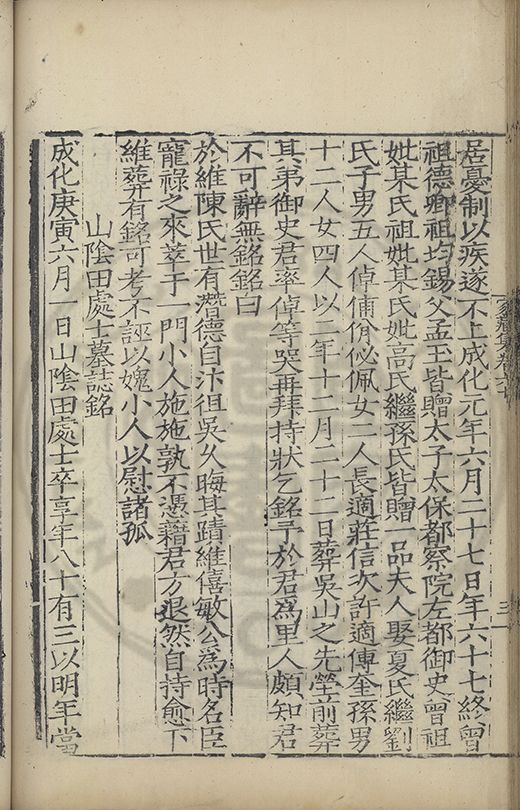 居憂制以疾遂不上成化元年六月二十七日年六十七終曾
祖德卿祖均錫父孟玉皆贈太子太保都察院左都御史曾祖
妣某氏祖妣某氏妣高氏繼孫氏皆贈一品夫人娶夏氏繼劉
氏子男五人倬俌佾佖佩女二人長適莊信次許適傳奎孫男
十二人女四人以二年十二月二十二日葬吳山之先塋前葬
其弟御史君率倬等哭再拜持狀乞銘予於君爲里人頗知君
不可辭無銘銘曰
於維陳氏世有濳德自汴徂吳久晦其蹟維僖敏公爲時名臣
寵祿之來萃于一門小人施施孰不憑藉君方退然自持愈下
維葬有銘可考不誣以媿小人以慰諸孤
山陰田處士墓誌銘
成化庚寅六月一日山陰田處士卒享年八十有三以明年當
家藏集卷六十